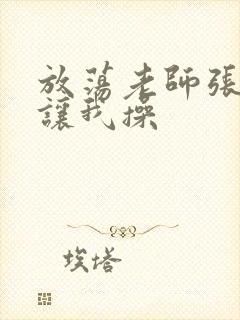 放蕩老師張
讓我操
埃塔